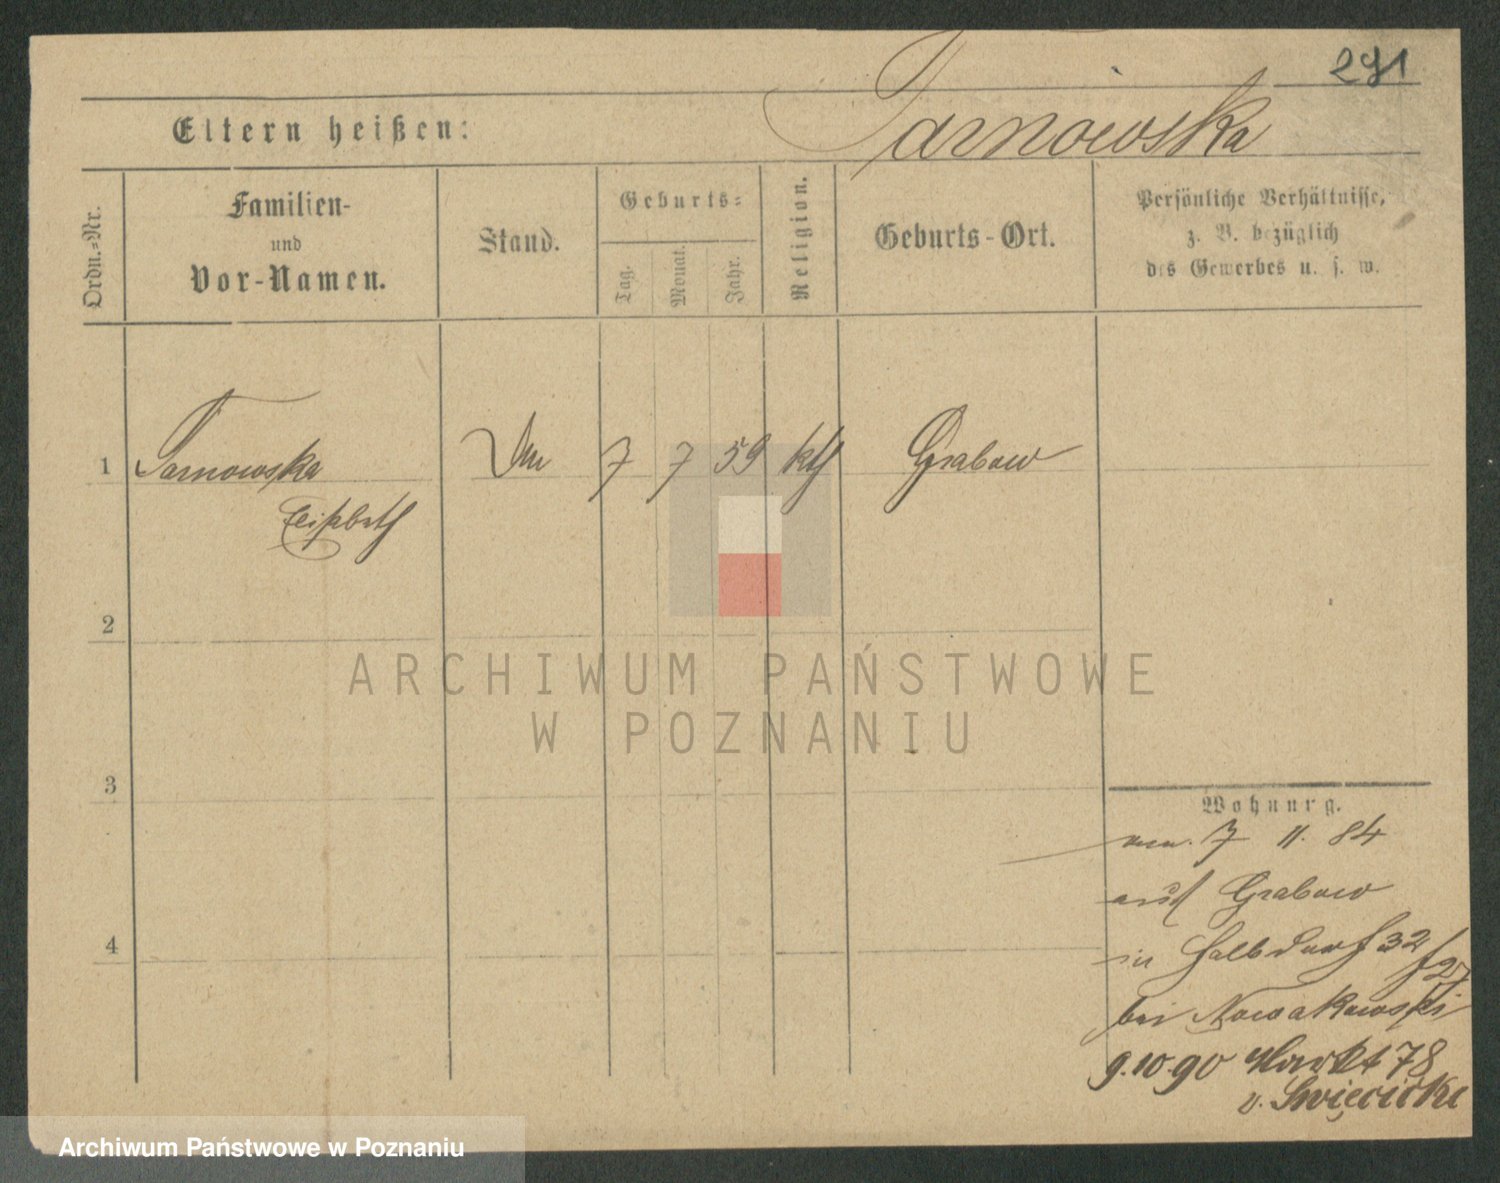 291
Eltern heißen: Tarnowska
Ordn.-Nr.
Familien-
und
Vor-Namen.
Stand.
Geburts-
Tag.
Monat.
Jahr.
Religion.
Geburts-Ort.
Persönliche Verhältnisse,
z. B. bezüglich
des Gewerbes u. s. w.
1 Tarnowska 7 7 59 kth Grabow
2
3
4
Wohnung.
7 11. 84
aus Grabow
in Halbdorf 32/27
bei Nowakowski
9.10.90 Markt 78
v. Swięcicki
ARCHIWUM PAŃSTWOWE
W POZNANIU
Archiwum Państwowe w Poznaniu